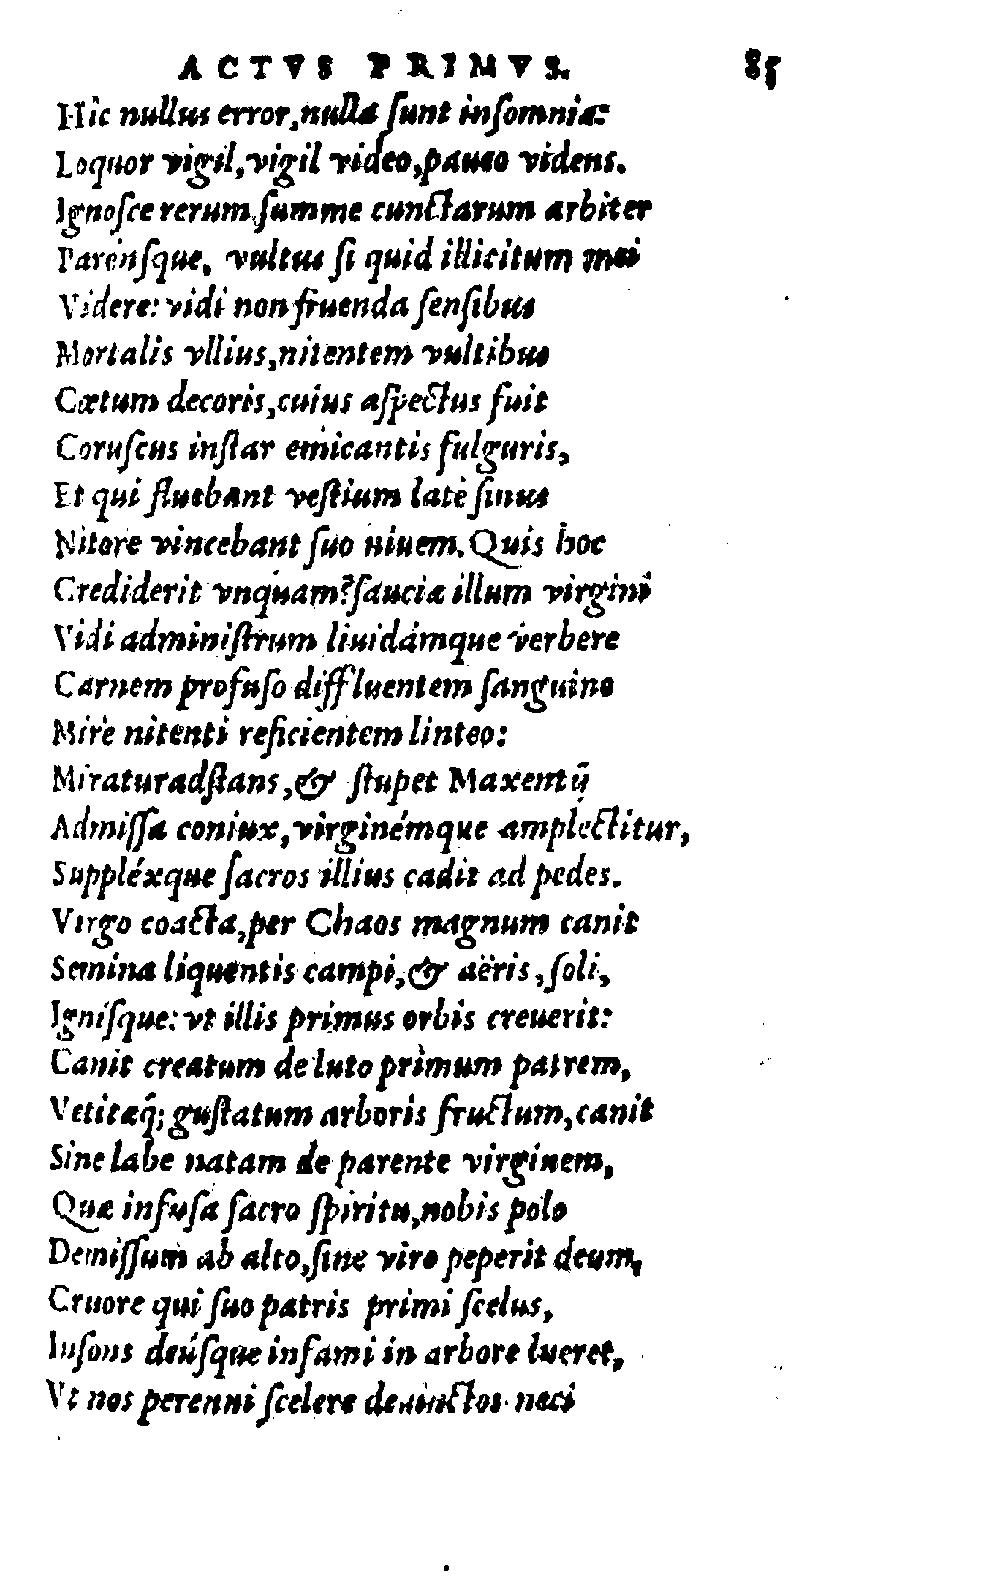 ACTVS PRIMVS. 85
Hîc nullus error, nulla sunt insomnia:
Loquor vigil, vigil video, paueo videns.
Ignosce rerum summe cunctarum arbiter
Parénsque, vultus si quid illicitum mei
Videre: vidi non fruenda sensibus
Mortalis vllius, nitentem vultibus
Cœtum decoris, cuius aspectus fuit
Coruscus instar emicantis fulguris,
Et qui fluebant vestium latè sinus
Nitore vincebant suo niuem. Quis hoc
Crediderit vnquam? sauciæ illum virgini
Vidi administrum liuidámque verbere
Carnem profuso diffluentem sanguine
Mirè nitenti reficientem linteo:
Miratur adstans, & stupet Maxentij
Admissa coniux, virginémque amplectitur,
Suppléxque sacros illius cadit ad pedes.
Virgo coacta, per Chaos magnum canit
Semina liquentis campi, & aëris, soli,
Ignísque: vt illis primus orbis creuerit:
Canit creatum de luto primum patrem,
Vetitæq; gustatum arboris fructum, canit
Sine labe natam de parente virginem,
Quæ infusa sacro spiritu, nobis polo
Demissum ab alto, sine viro peperit deum,
Cruore qui suo patris primi scelus,
Insons deúsque infami in arbore lueret,
Vt nos perenni scelere deuinctos neci